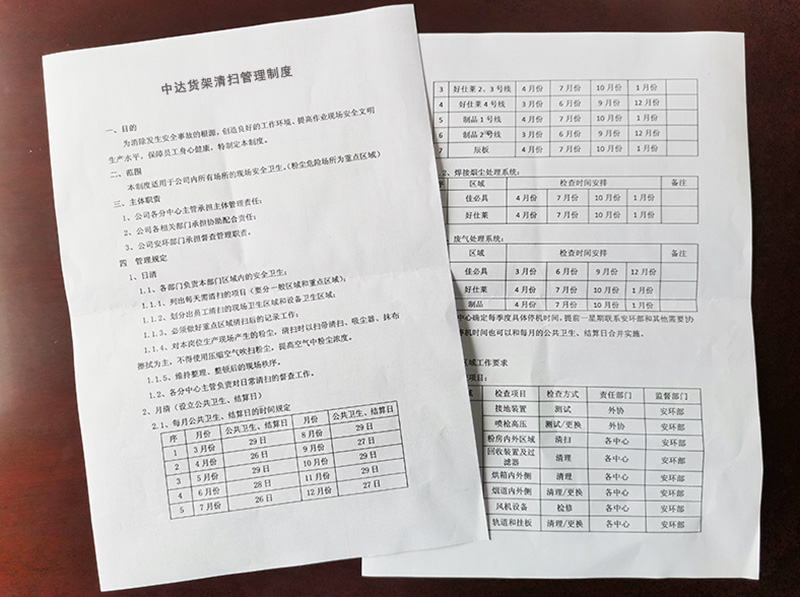 中达货架清扫管理制度
一、目的
为消除发生安全事故的根源，创造良好的工作环境、提高作业现场安全文明
生产水平，保障员工身心健康，特制定本制度。
二、范围
本制度适用于公司内所有场所的现场安全卫生。（粉尘危险场所为重点区域）
三、主体职责
1、公司各分中心主管承担主体管理责任；
2、公司各相关部门承担协助配合责任；
3、公司安环部门承担督查管理职责。
四 管理规定
1、日清
1.1、各部门负责本部门区域内的安全卫生；
1.1.1、列出每天需清扫的项目（要分一般区域和重点区域）；
1.1.2、划分出员工清扫的现场卫生区域和设备卫生区域；
1.1.3、必须做好重点区域清扫后的记录工作；
1.1.4、对本岗位生产现场产生的粉尘，清扫时以扫带清扫、吸尘器、抹布
擦拭为主，不得使用压缩空气吹扫粉尘，提高空气中粉尘浓度。
1.1.5、维持整理、整顿后的现场秩序。
1.2、各分中心主管负责对日常清扫的督查工作。
2、月清（设立公共卫生、结算日）
2.1、每月公共卫生、结算日的时间规定
序 月份 公共卫生、结算日 月份 公共卫生、结算日
1 3月份 29日 8月份 29日
2 4月份 26日 9月份 27日
3 5月份 29日 10月份 29日
4 6月份 28日 11月份 29日
5 7月份 26日 12月份 27日
3 好仕莱2、3号线 4月份 7月份 10月份 1月份
4 好仕莱4号线 3月份 6月份 9月份 12月份
5 制品1号线 4月份 7月份 10月份 1月份
6 制品2号线 3月份 6月份 9月份 12月份
7 辰板 4月份 7月份 10月份 1月份
.2、焊接烟尘处理系统：
序 区域 检查时间安排 备注
佳必具 4月份 7月份 10月份 1月份
好仕莱 4月份 7月份 10月份 1月份
、废气处理系统：
区域 检查时间安排 备注
佳必具 3月份 6月份 9月份 12月份
好仕莱 4月份 7月份 10月份 1月份
制品 4月份 7月份 10月份 1月份
中心确定每季度具体停机时间，提前一星期联系安环部和其他需要协
停机时间也可以和每月的公共卫生、结算日合并实施。
区域工作要求
项目：
检查项目 检查方式 责任部门 监督部门
接地装置 测试 外协 安环部
喷枪高压 测试/更换 外协 安环部
粉房内外区域 清扫 各中心 安环部
回收装置及过滤器 清理 各中心 安环部
烘箱内外侧 清理 各中心 安环部
烟道内外侧 清理/更换 各中心 安环部
风机设备 检修 各中心 安环部
轨道和挂板 清理/更换 各中心 安环部